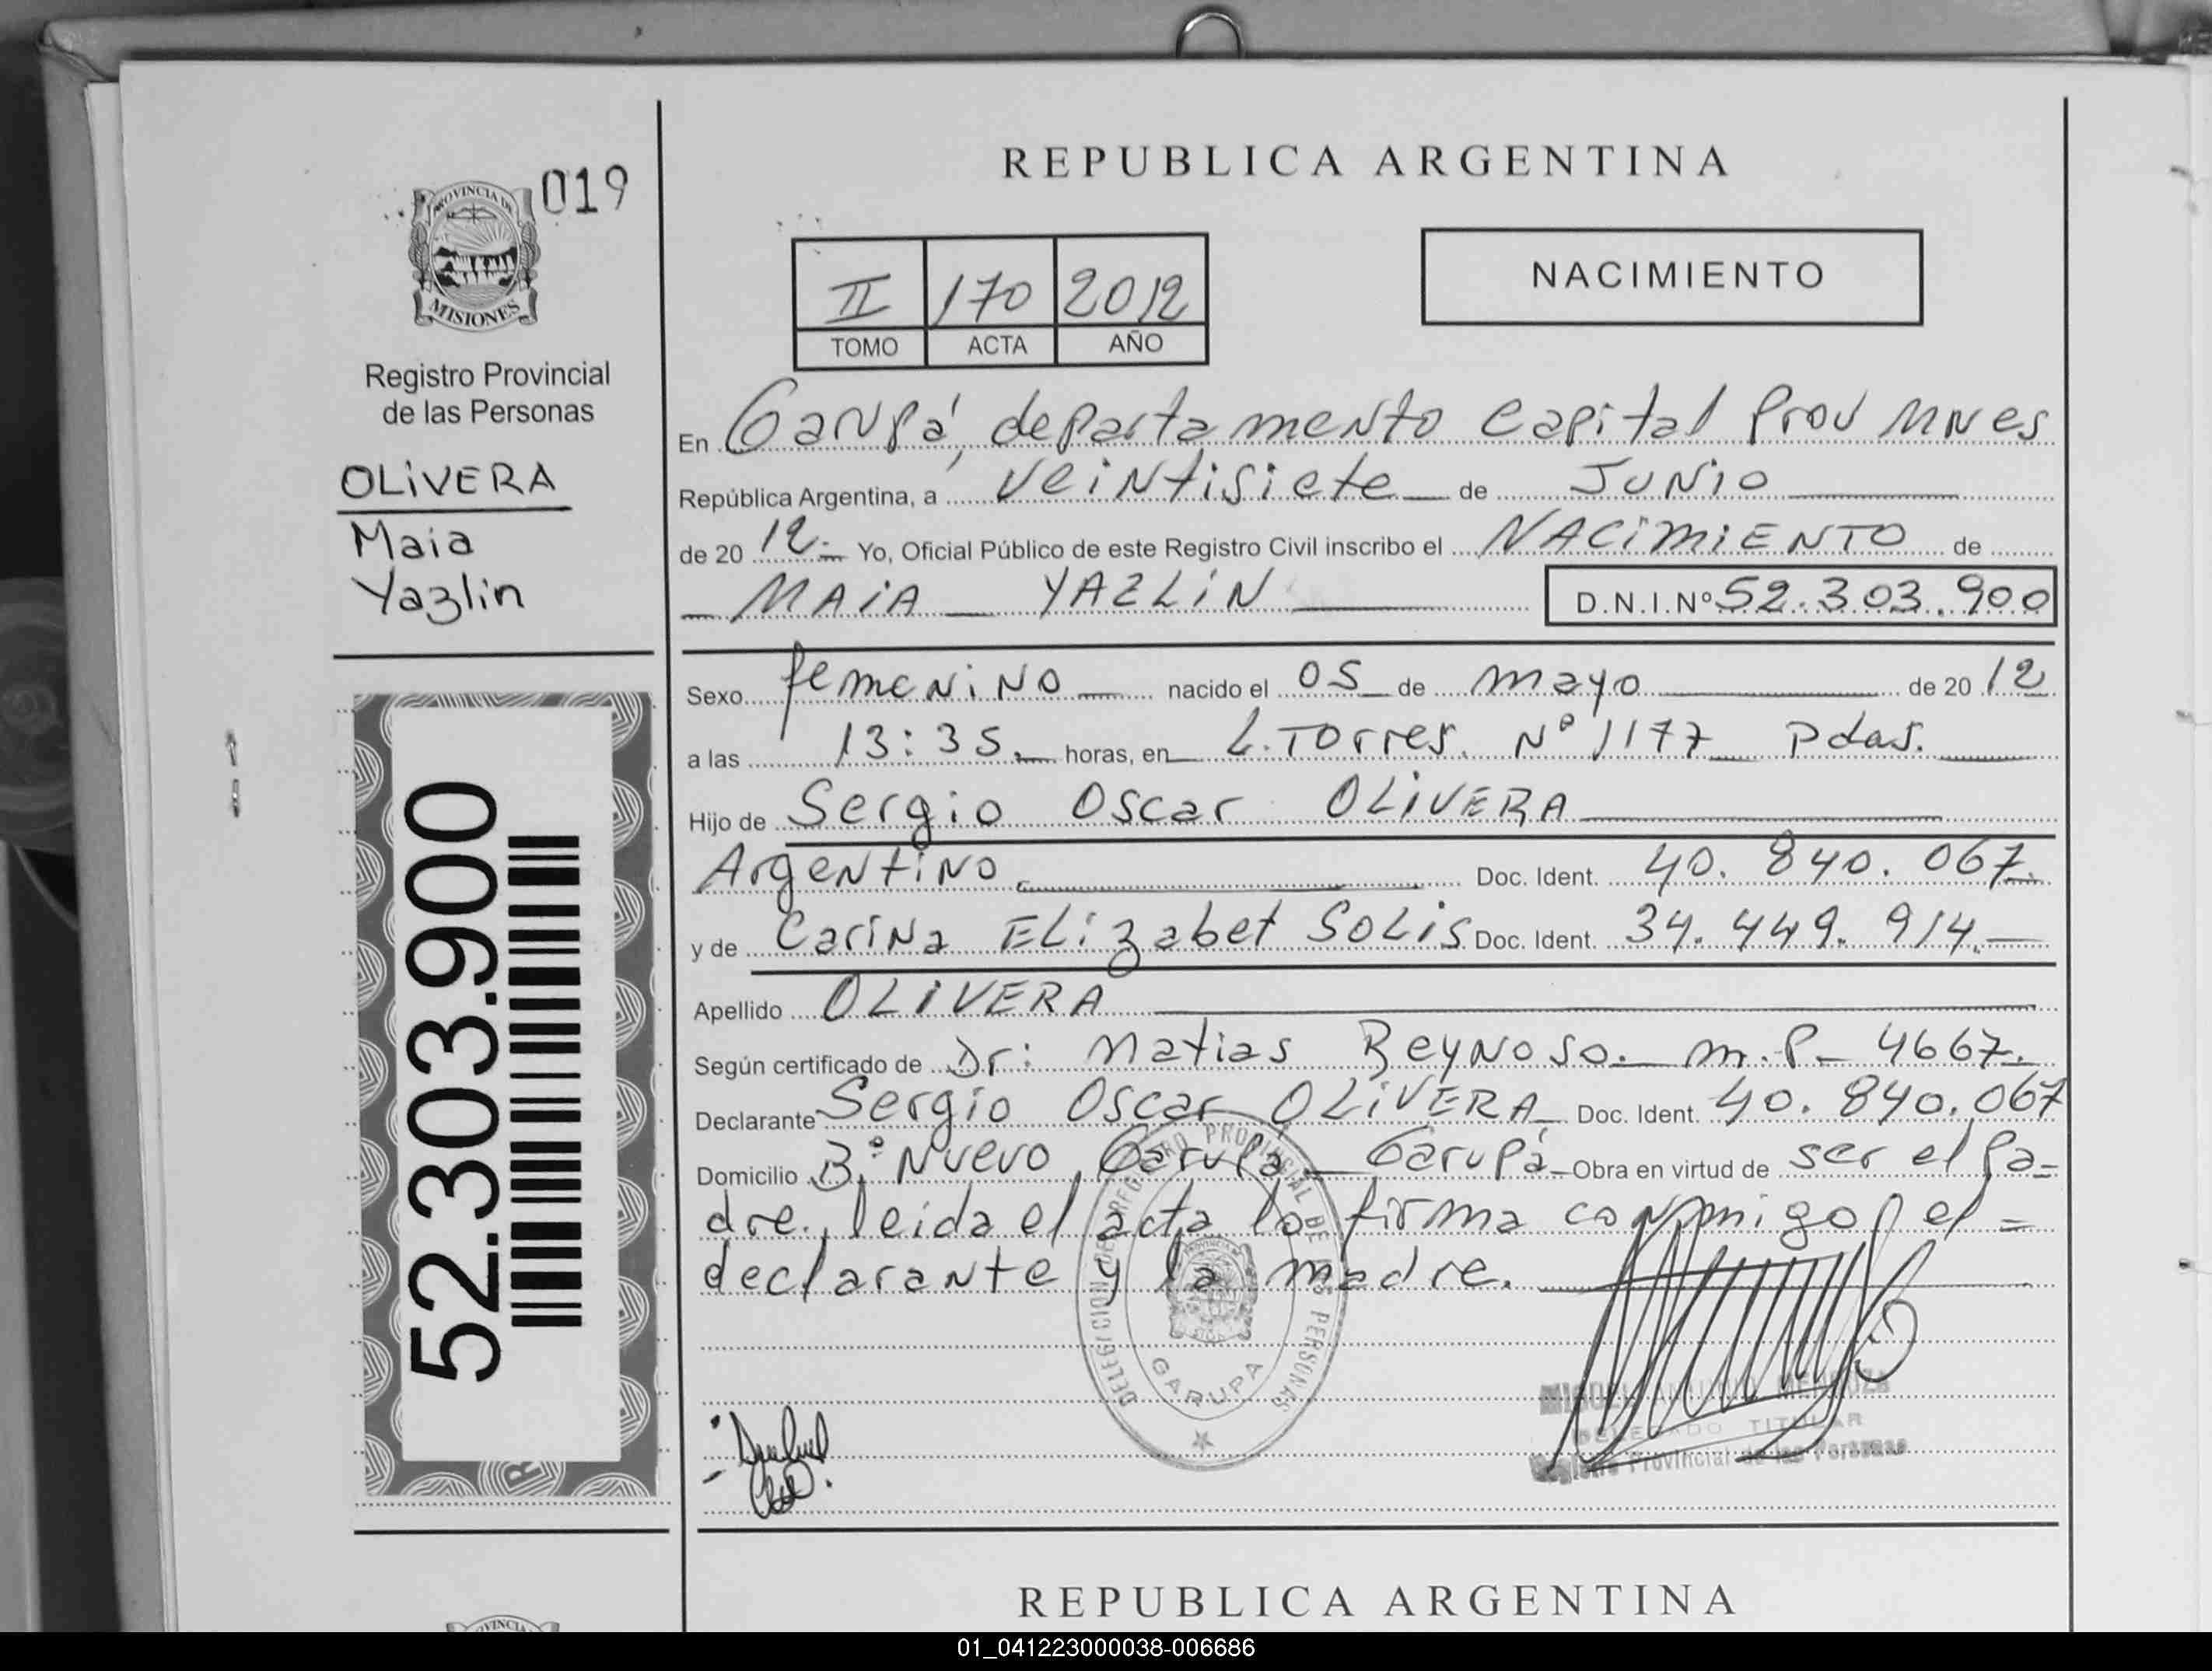 019
PROVINCIA DE
MISIONES
Registro Provincial
de las Personas
OLIVERA
Maia
Yazlin
52.303.900
REPUBLICA ARGENTINA
II 170 2012
TOMO ACTA AÑO
NACIMIENTO
En Garupá, departamento Capital Prov Mnes
República Argentina, a veintisiete de Junio
de 20 12 Yo, Oficial Público de este Registro Civil inscribo el NACIMIENTO de
MAIA YAZLIN D.N.I. Nº 52.303.900
Sexo femenino nacido el 05 de mayo de 20 12
a las 13:35 horas, en L. Torres. Nº 1177 Pdas.
Hijo de Sergio Oscar OLIVERA
Argentino Doc. Ident. 40. 840. 067.
y de Carina Elizabet SOLIS Doc. Ident. 34. 449. 914.
Apellido OLIVERA
Según certificado de Dr: Matias Reynoso. m.P. 4667.
Declarante Sergio Oscar OLIVERA Doc. Ident. 40. 840. 067
Domicilio Bº Nuevo Garupá - Garupá Obra en virtud de ser el pa=
dre. leida el acta la firma conmigo el =
declarante y la madre.
DELEGACION DE REGISTRO PROVINCIAL DE LAS PERSONAS
GARUPA
DELEGADO TITULAR
Registro Provincial de las Personas
REPUBLICA ARGENTINA
01_041223000038-006686